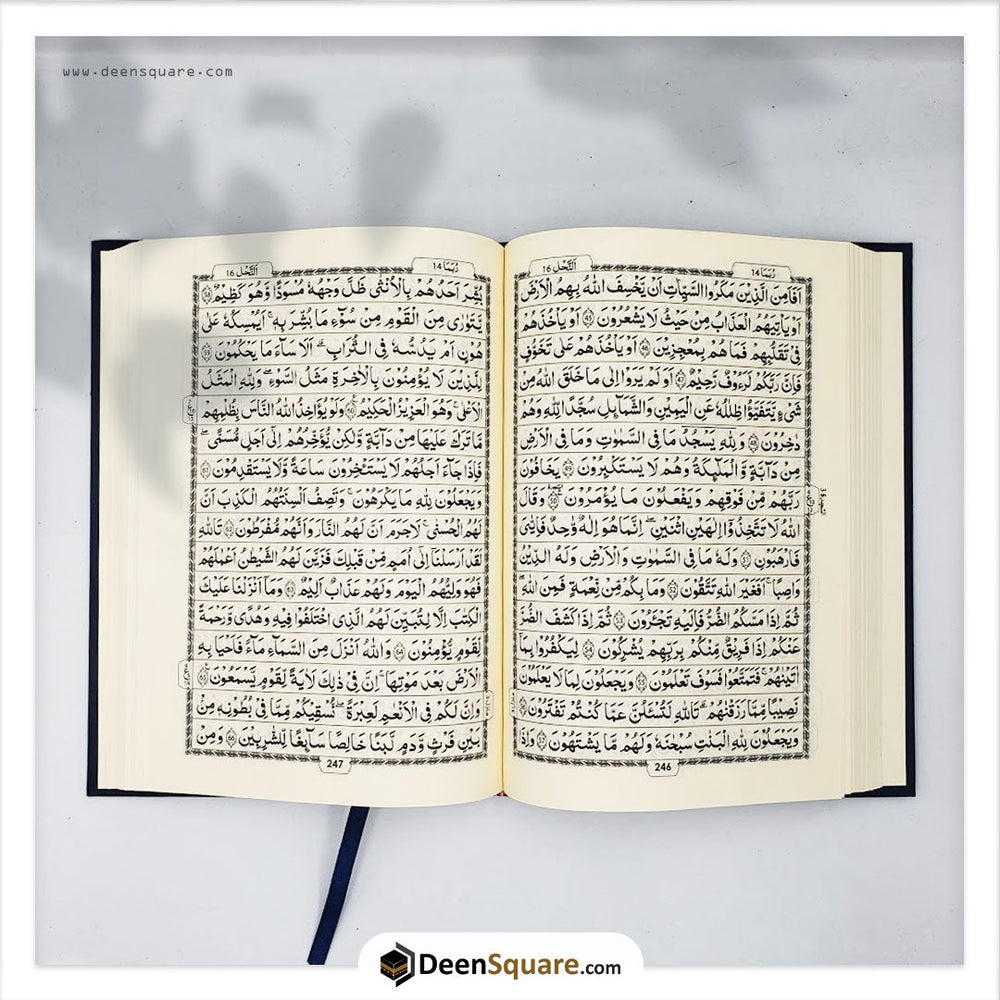 www.deensquare.com
رُبَمَا 14
اَلنَّحْل 16
اَفَاَمِنَ الَّذِيْنَ مَكَرُوا السَّيِّاٰتِ اَنْ يَّخْسِفَ اللّٰهُ بِهِمُ الْاَرْضَ
اَوْ يَاْتِيَهُمُ الْعَذَابُ مِنْ حَيْثُ لَا يَشْعُرُوْنَ ۙ‏ 45 اَوْ يَاْخُذَهُمْ
فِيْ تَقَلُّبِهِمْ فَمَا هُمْ بِمُعْجِزِيْنَ ۙ‏ 46 اَوْ يَاْخُذَهُمْ عَلٰى تَخَوُّفٍ
فَاِنَّ رَبَّكُمْ لَرَءُوْفٌ رَّحِيْمٌ 47 اَوَلَمْ يَرَوْا اِلٰى مَا خَلَقَ اللّٰهُ مِنْ
شَيْءٍ يَّتَفَيَّؤُا ظِلٰلُهٗ عَنِ الْيَمِيْنِ وَالشَّمَآئِلِ سُجَّدًا لِّلّٰهِ وَهُمْ
دٰخِرُوْنَ 48 وَلِلّٰهِ يَسْجُدُ مَا فِي السَّمٰوٰتِ وَمَا فِي الْاَرْضِ
مِنْ دَآبَّةٍ وَّالْمَلٰٓئِكَةُ وَهُمْ لَا يَسْتَكْبِرُوْنَ 49 يَخَافُوْنَ
رَبَّهُمْ مِّنْ فَوْقِهِمْ وَيَفْعَلُوْنَ مَا يُؤْمَرُوْنَ 50 وَقَالَ
اللّٰهُ لَا تَتَّخِذُوْٓا اِلٰهَيْنِ اثْنَيْنِ ۚ اِنَّمَا هُوَ اِلٰهٌ وَّاحِدٌ فَاِيَّايَ
فَارْهَبُوْنِ 51 وَلَهٗ مَا فِي السَّمٰوٰتِ وَالْاَرْضِ وَلَهُ الدِّيْنُ
وَاصِبًا ؕ اَفَغَيْرَ اللّٰهِ تَتَّقُوْنَ 52 وَمَا بِكُمْ مِّنْ نِّعْمَةٍ فَمِنَ اللّٰهِ
ثُمَّ اِذَا مَسَّكُمُ الضُّرُّ فَاِلَيْهِ تَجْـَٔرُوْنَ 53 ثُمَّ اِذَا كَشَفَ الضُّرَّ
عَنْكُمْ اِذَا فَرِيْقٌ مِّنْكُمْ بِرَبِّهِمْ يُشْرِكُوْنَ 54 لِيَكْفُرُوْا بِمَآ
اٰتَيْنٰهُمْ ؕ فَتَمَتَّعُوْا فَسَوْفَ تَعْلَمُوْنَ 55 وَيَجْعَلُوْنَ لِمَا لَا يَعْلَمُوْنَ
نَصِيْبًا مِّمَّا رَزَقْنٰهُمْ ؕ تَاللّٰهِ لَتُسْـَٔلُنَّ عَمَّا كُنْتُمْ تَفْتَرُوْنَ 56
وَيَجْعَلُوْنَ لِلّٰهِ الْبَنٰتِ سُبْحٰنَهٗ وَلَهُمْ مَّا يَشْتَهُوْنَ 57 وَاِذَا
246
رُبَمَا 14
اَلنَّحْل 16
بُشِّرَ اَحَدُهُمْ بِالْاُنْثٰى ظَلَّ وَجْهُهٗ مُسْوَدًّا وَّهُوَ كَظِيْمٌ 58
يَتَوَارٰى مِنَ الْقَوْمِ مِنْ سُوْٓءِ مَا بُشِّرَ بِهٖ ؕ اَيُمْسِكُهٗ عَلٰى
هُوْنٍ اَمْ يَدُسُّهٗ فِي التُّرَابِ ؕ اَلَا سَآءَ مَا يَحْكُمُوْنَ 59
لِلَّذِيْنَ لَا يُؤْمِنُوْنَ بِالْاٰخِرَةِ مَثَلُ السَّوْءِ ۚ وَلِلّٰهِ الْمَثَلُ
الْاَعْلٰى ؕ وَهُوَ الْعَزِيْزُ الْحَكِيْمُ 60 وَلَوْ يُؤَاخِذُ اللّٰهُ النَّاسَ بِظُلْمِهِمْ
مَّا تَرَكَ عَلَيْهَا مِنْ دَآبَّةٍ وَّلٰكِنْ يُّؤَخِّرُهُمْ اِلٰٓى اَجَلٍ مُّسَمًّى ۚ
فَاِذَا جَآءَ اَجَلُهُمْ لَا يَسْتَـْٔخِرُوْنَ سَاعَةً وَّلَا يَسْتَقْدِمُوْنَ 61
وَيَجْعَلُوْنَ لِلّٰهِ مَا يَكْرَهُوْنَ وَتَصِفُ اَلْسِنَتُهُمُ الْكَذِبَ اَنَّ
لَهُمُ الْحُسْنٰى ؕ لَا جَرَمَ اَنَّ لَهُمُ النَّارَ وَاَنَّهُمْ مُّفْرَطُوْنَ 62 تَاللّٰهِ
لَقَدْ اَرْسَلْنَآ اِلٰٓى اُمَمٍ مِّنْ قَبْلِكَ فَزَيَّنَ لَهُمُ الشَّيْطٰنُ اَعْمَالَهُمْ
فَهُوَ وَلِيُّهُمُ الْيَوْمَ وَلَهُمْ عَذَابٌ اَلِيْمٌ 63 وَمَآ اَنْزَلْنَا عَلَيْكَ
الْكِتٰبَ اِلَّا لِتُبَيِّنَ لَهُمُ الَّذِي اخْتَلَفُوْا فِيْهِ وَهُدًى وَّرَحْمَةً
لِّقَوْمٍ يُّؤْمِنُوْنَ 64 وَاللّٰهُ اَنْزَلَ مِنَ السَّمَآءِ مَآءً فَاَحْيَا بِهِ
الْاَرْضَ بَعْدَ مَوْتِهَا ؕ اِنَّ فِيْ ذٰلِكَ لَاٰيَةً لِّقَوْمٍ يَّسْمَعُوْنَ 65
وَاِنَّ لَكُمْ فِي الْاَنْعَامِ لَعِبْرَةً ؕ نُسْقِيْكُمْ مِّمَّا فِيْ بُطُوْنِهٖ مِنْۢ
بَيْنِ فَرْثٍ وَّدَمٍ لَّبَنًا خَالِصًا سَآئِغًا لِّلشّٰرِبِيْنَ 66 وَمِنْ
247
DeenSquare.com